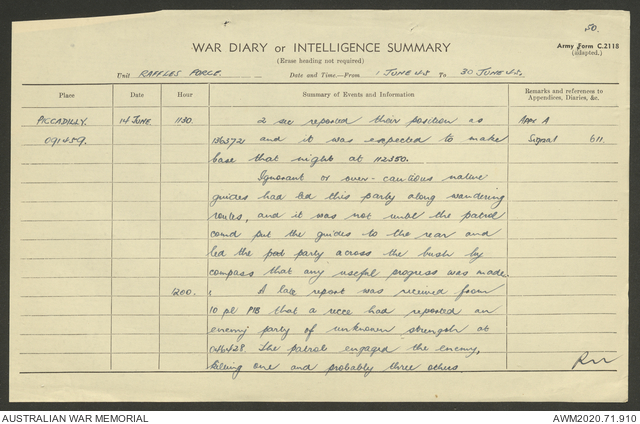 50.
WAR DIARY or INTELLIGENCE SUMMARY
Army Form C.2118
(adapted.)
(Erase heading not required)
Unit RAFFLES FORCE. Date and Time.—From 1 JUNE 45 To 30 JUNE 45.
Place Date Hour Summary of Events and Information Remarks and references to Appendices, Diaries, &c.
PICCADILLY. 14 JUNE 1130. 2 sec reported their position as Appx A
091459. 136572 and it was expected to make Signal 611.
base that night at 112550.
Ignorant or over-cautious native
guides had led this party along wandering
routes, and it was not until the patrol
comd put the guides to the rear and
led the party across the bush by
compass that any useful progress was made.
1200. A late report was received from
10 pl PIB that a recce had reported an
enemy party of unknown strength at
046428. The patrol engaged the enemy,
killing one and probably three others
AUSTRALIAN WAR MEMORIAL AWM2020.71.910